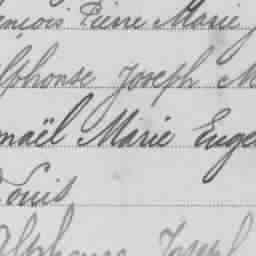 ençois Pierre Marie J
lphonse Joseph M
maël Marie Euge
Louis
Alphonse Joseph